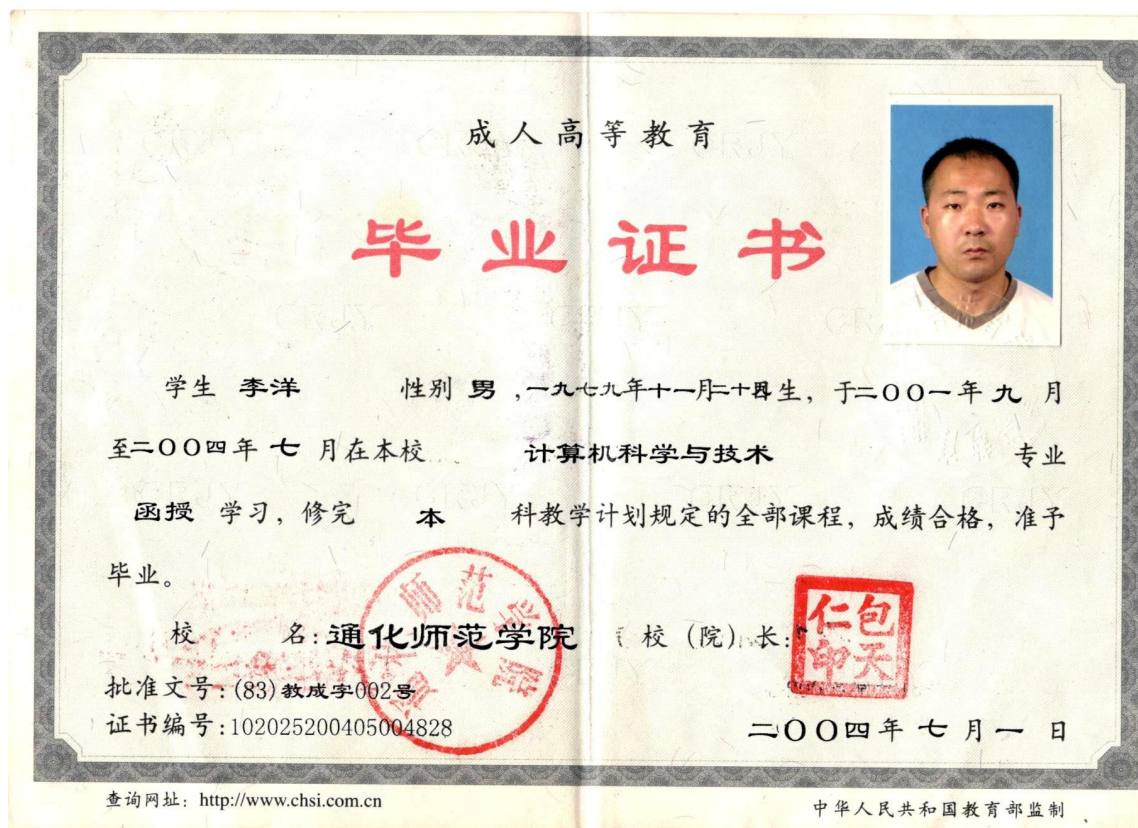 成人高等教育
毕业证书
学生 李洋 性别 男 ,一九七九年十一月二十四日生, 于二〇〇一年 九 月
至二〇〇四年 七 月在本校 计算机科学与技术 专业
函授 学习, 修完 本 科教学计划规定的全部课程, 成绩合格, 准予
毕业。
校 名:通化师范学院 校(院)长:
包天仁印
批准文号:(83)教成字002号
证书编号:102025200405004828
二〇〇四年 七 月 一 日
查询网址: http://www.chsi.com.cn
中华人民共和国教育部监制